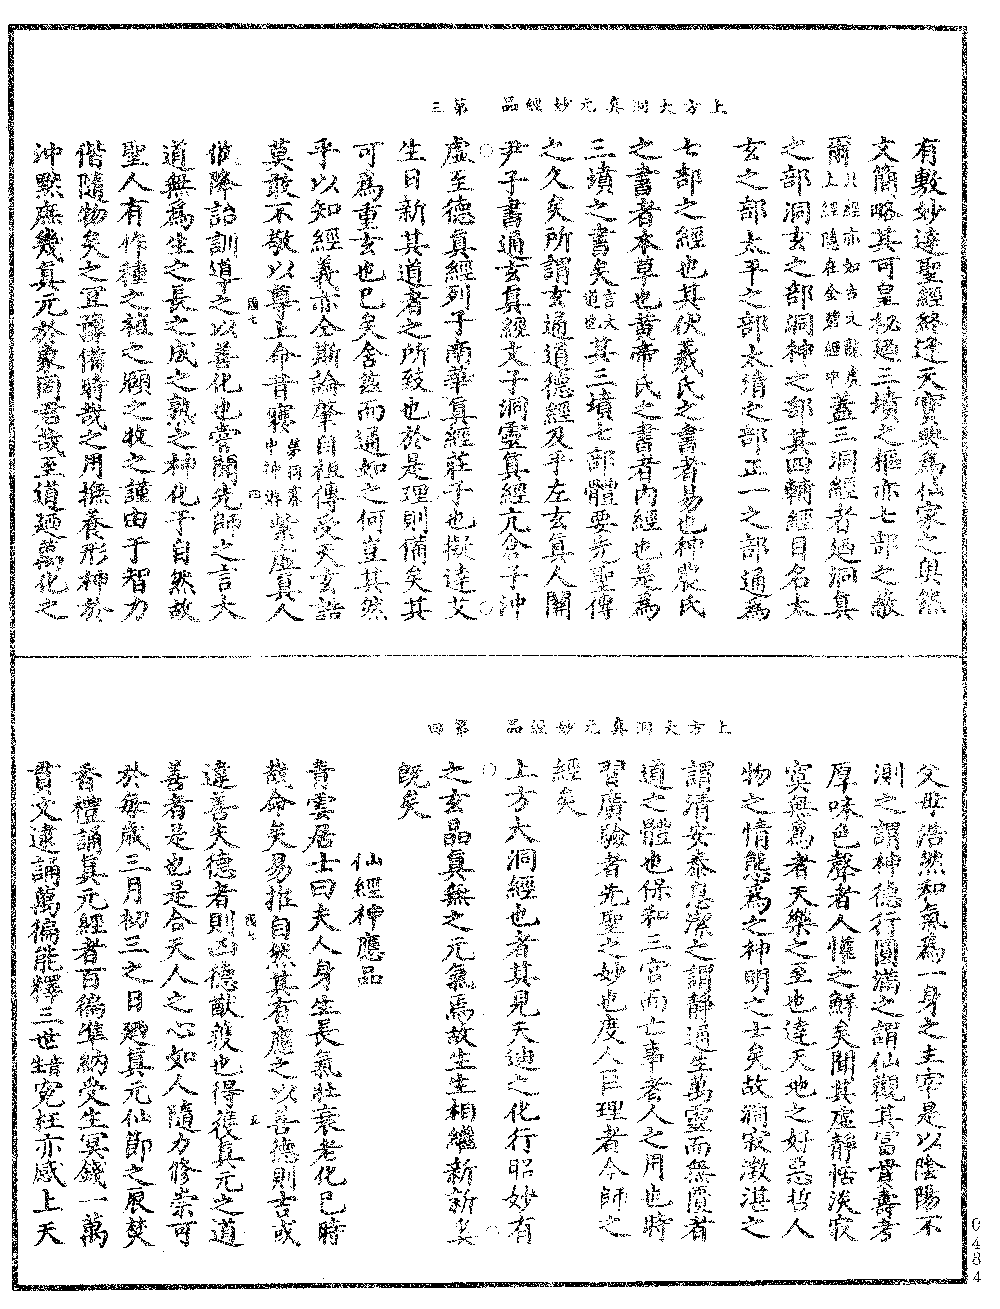 上方大洞真元妙經品　第三
有敷妙達聖經終達天寶典為仙家之奧然
文簡略其可皇祕廼三墳之樞亦七部之敵
爾上經隱在金碧經中蓋三洞經者廼洞真
之部洞玄之部洞神之部其四輔經目名太
玄之部太平之部太清之部正一之部通為
七部之經也其伏羲氏之書者易也神農氏
之書者本草也黃帝氏之書者內經也是為
三墳之書矣言大道也其三墳七部體要先聖傳
之久矣所謂玄通道德經及乎左玄真人關
尹子書通玄真經文子洞靈真經亢倉子沖
虛至德真經列子南華真經莊子也擬達艾
生日新其道者之所致也於是理則備矣其
可為重玄也已矣含茲而通如之何豈其然
乎以知經義亦全斯論肇自祖傳受天玄誥
莫敢不敬以尊上命昔寢夢寐中神遊紫虛真人
俶降詔訓導之以善化也嘗聞先師之言大
道無為生之長之成之熟之神化于自然故
聖人有作種之植之願之牧之謹由于智力
偕隨物矣之宜備時哉之用撫養形神於
沖默庶幾真元於象罔君哉至道廼萬化之
上方大洞真元妙經品　第四
父母浩然和氣為一身之主宰是以陰陽不
測之謂神德行圓滿之謂仙觀其富貴壽考
厚味色聲者人懽之鮮矣聞其虛靜恬淡寂
寞無為者天樂之至也達天地之好惡哲人
物之情態為之神明之士矣故洞寂澂湛之
謂清安泰息潔之謂靜通生萬靈而無匱者
道之體也保和三宮而亡事者人之用也時
習廣驗者先聖之妙也度人巨理者今師之
經矣
上方大洞經也者其見天迪之化行昭妙有
之玄品真無之元氣焉故生生相繼新新其
既矣
仙經神應品
青雲居士曰夫人身生長氣壯衰老化已時
哉命矣易推自然其有應之以善德則吉或
違善失德者則凶德猷護也得獲真元之道
善者是也是合天人之心如人隨力修崇可
於每歲三月初三之日廼真元仙節之辰焚
香禮誦真元經者百徧準納受生冥錢一萬
貫文逮誦萬徧能釋三世生眚冤枉亦感上天
0484